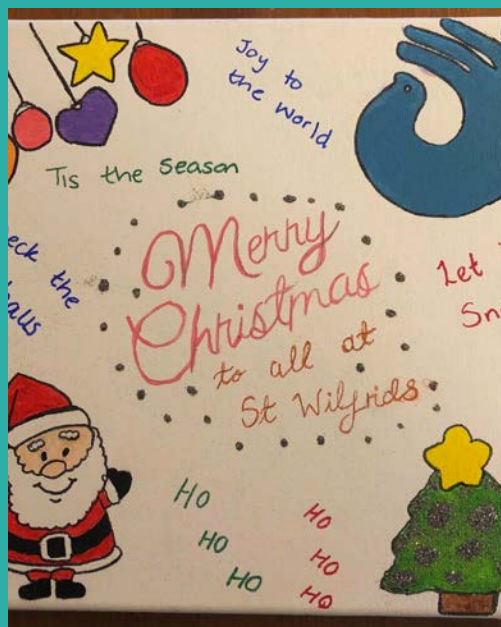 Joy to
the World
Tis the Season
eck the
alls
Merry
Christmas
to all at
St Wilfrids
Let
Sn
HO
HO
HO
HO
HO
HO